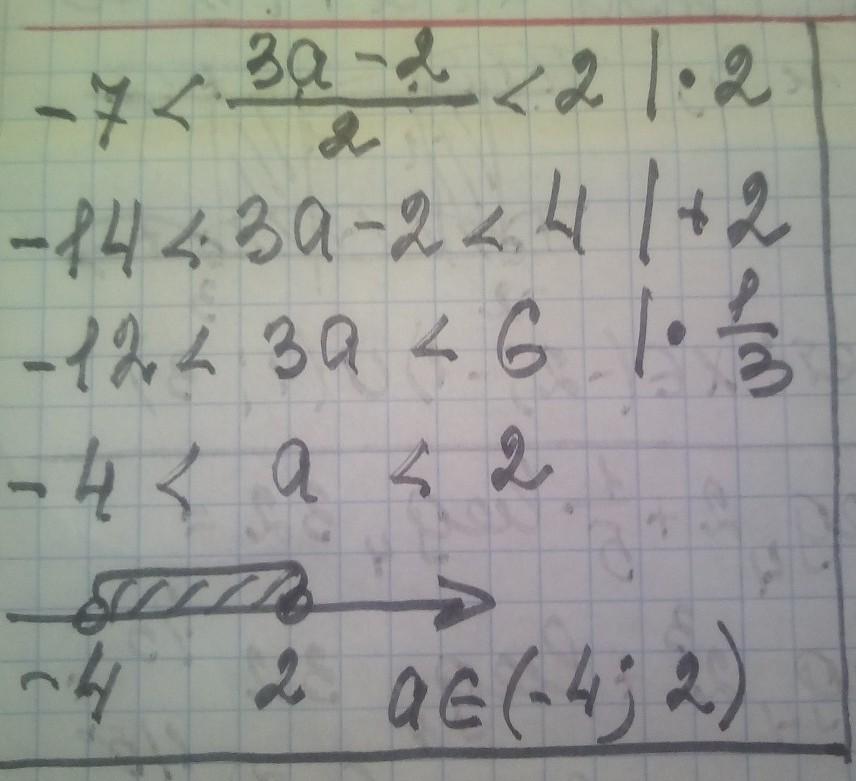 -7 < (3a-2)/2 < 2 | · 2
-14 < 3a-2 < 4 | + 2
-12 < 3a < 6 | · 1/3
-4 < a < 2
-4 2 a ∈ (-4; 2)